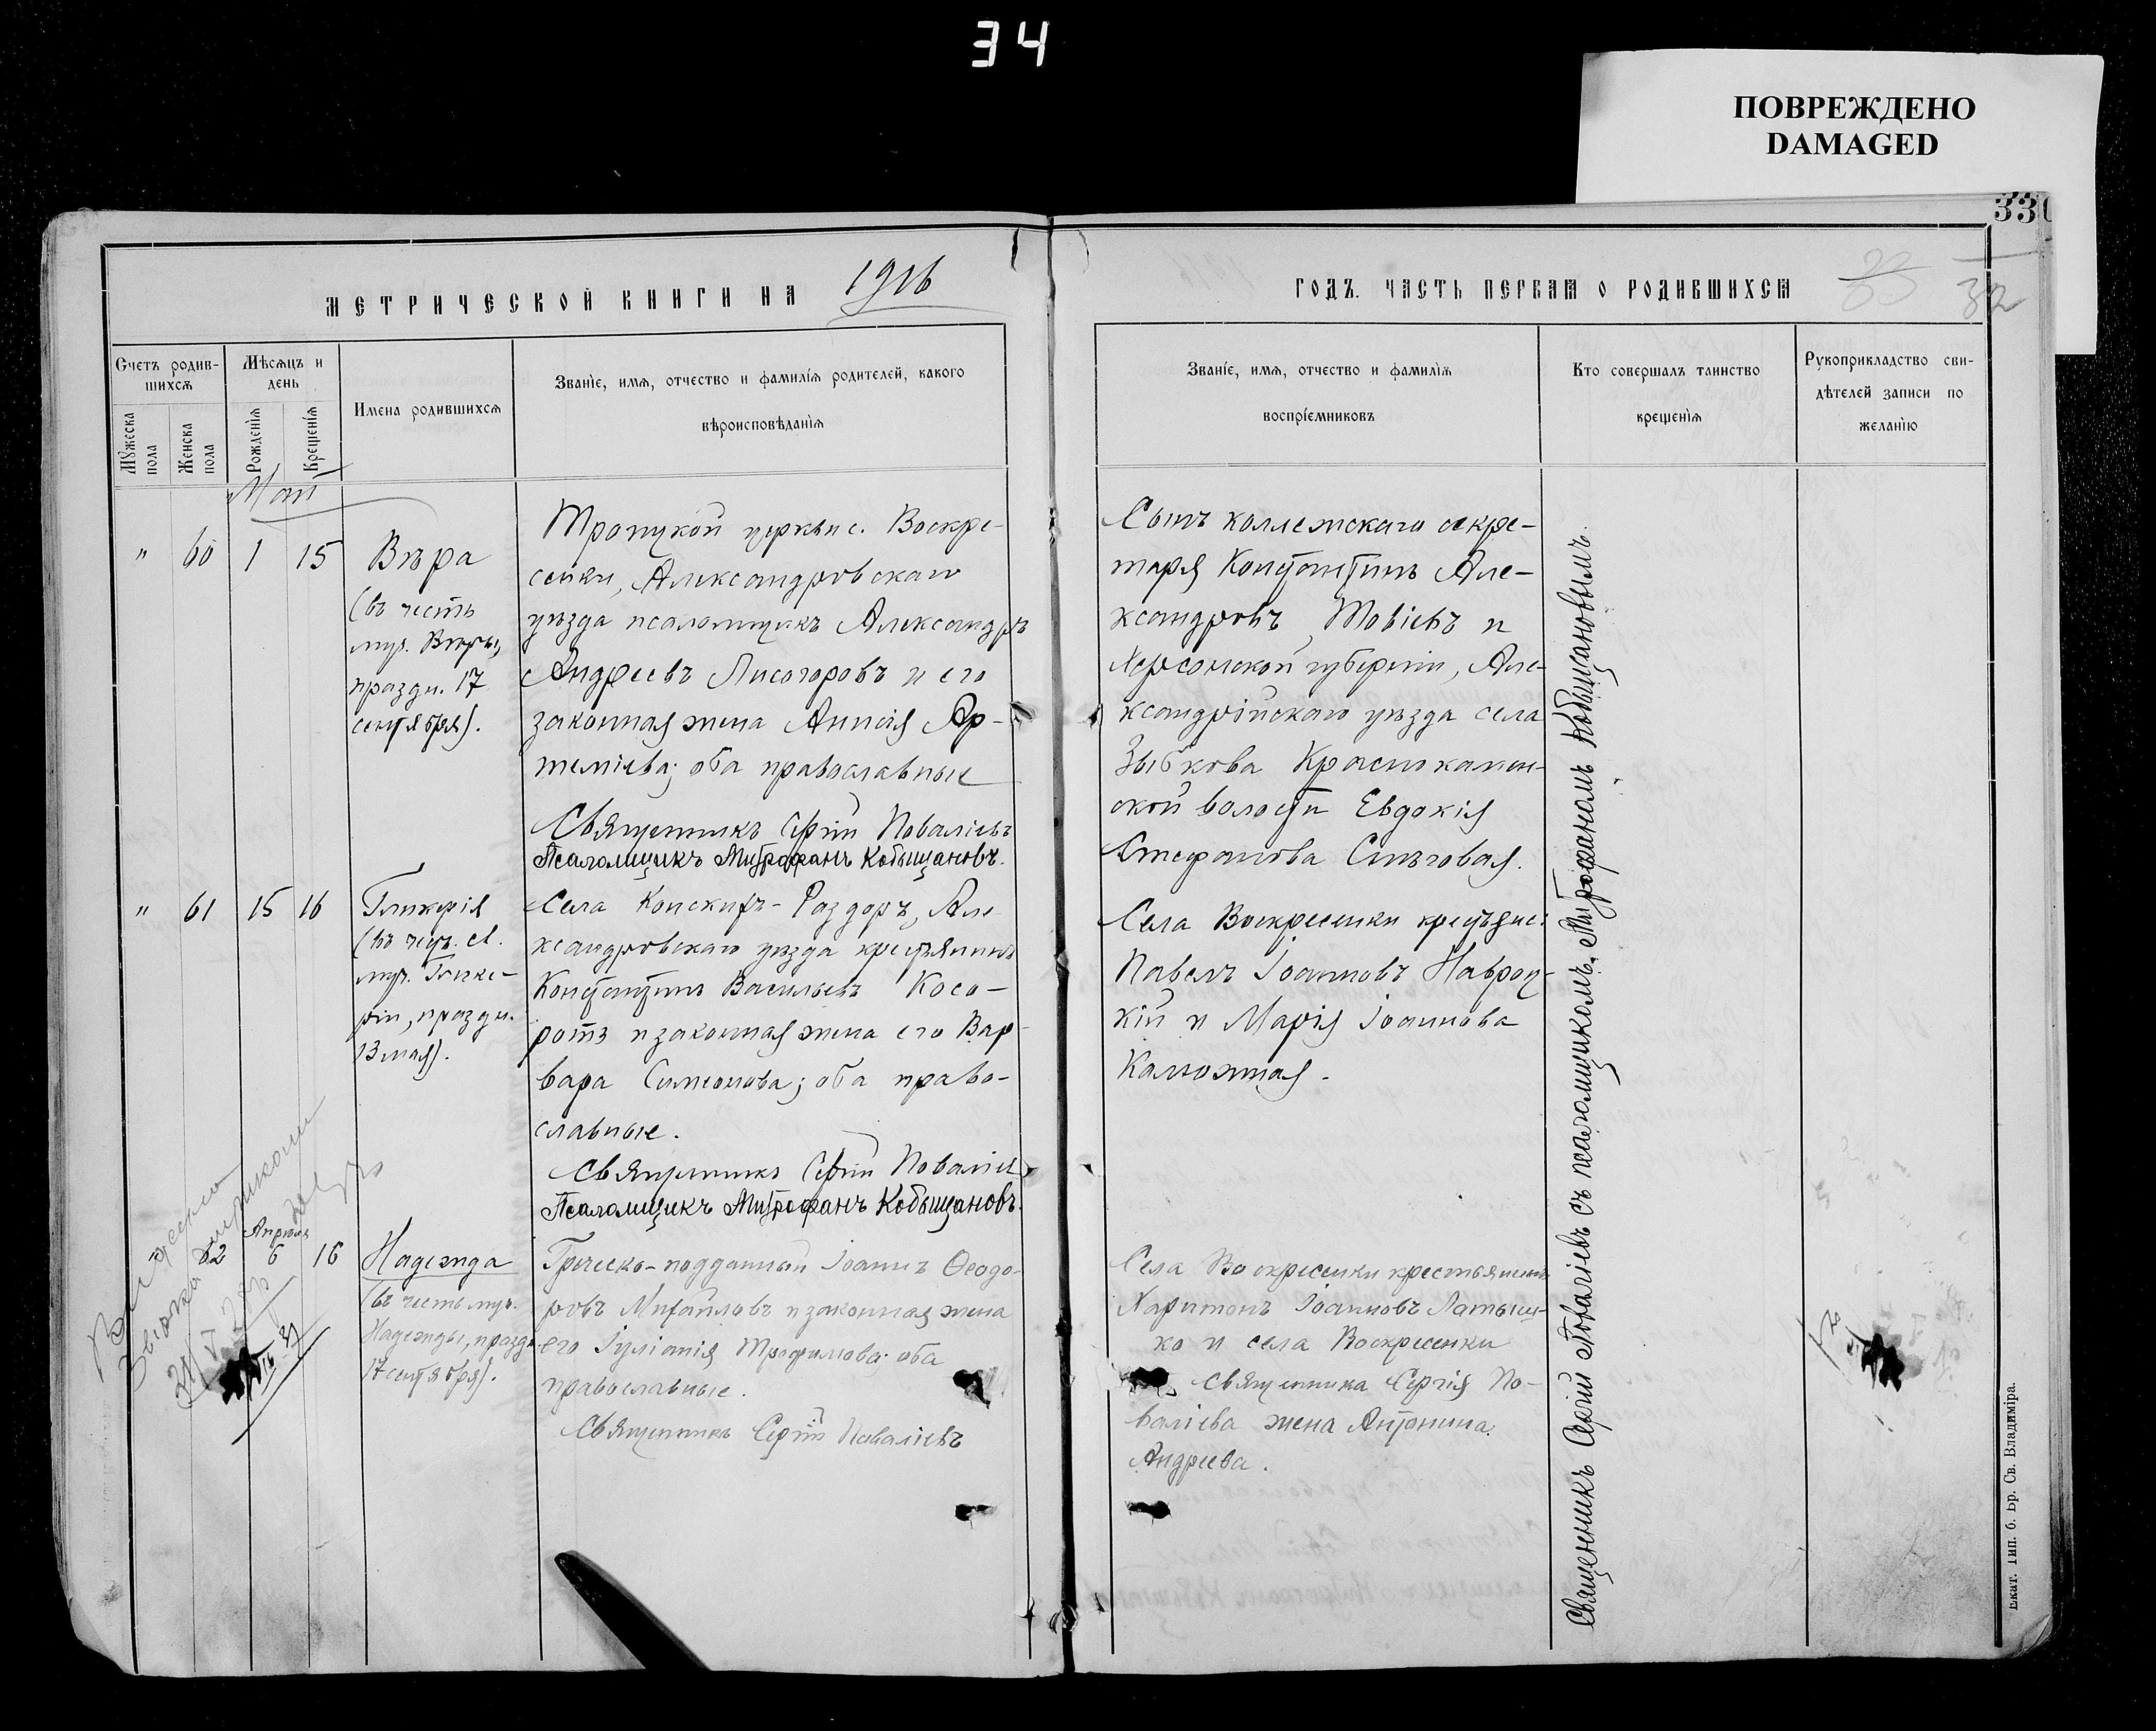 34
ПОВРЕЖДЕНО
DAMAGED
33
32
МЕТРИЧЕСКОЙ КНИГИ НА 1916
ГОДЪ. ЧАСТЬ ПЕРВАЯ О РОДИВШИХСЯ
Счетъ родив-
шихся
Мужеска
пола
Женска
пола
Мѣсяцъ и
день
Рожденія
Крещенія
Имена родившихся
Званіе, имя, отчество и фамилія родителей, какого
вѣроисповѣданія
Званіе, имя, отчество и фамилія
воспріемниковъ
Кто совершалъ таинство
крещенія
Рукоприкладство сви-
дѣтелей записи по
желанію
Май
" 60 1 15
Вѣра
(въ честь
муч. Вѣры,
праздн. 17
сентября).
Троицкой церкви с. Воскре-
сенки, Александровскаго
уѣзда псаломщикъ Александръ
Андреевъ Лисогоровъ и его
законная жена Аннія Ар-
теміева; оба православные
Священникъ Сергій Поваліевъ
Псаломщикъ Митрофанъ Кобыщановъ.
Сынъ коллежскаго секре-
таря Константинъ Але-
ксандровъ Товіевъ и
Херсонской губерніи, Але-
ксандрійскаго уѣзда села
Зыбкова Краснокамен-
ской волости Евдокія
Стефанова Снѣговая.
" 61 15 16
Гликерія
(въ чест. св.
муч. Глике-
ріи, праздн.
13 мая).
Села Конскихъ-Раздоръ, Але-
ксандровскаго уѣзда крестьянинъ
Константинъ Васильевъ Косо-
ротъ и законная жена его Вар-
вара Симеонова; оба право-
славные.
Священникъ Сергій Поваліевъ
Псаломщикъ Митрофанъ Кобыщановъ.
Села Воскресенки крестьяне:
Павелъ Іоанновъ Навроц-
кій и Марія Іоаннова
Калюжная.
Апрѣля
" 62 6 16
Надежда
(въ честь муч.
Надежды, праздн.
17 сентября).
Греческо-подданный Іоаннъ Ѳеодо-
ровъ Михайловъ и законная жена
его Іуліанія Трофимова; оба
православные.
Священникъ Сергій Поваліевъ
Села Воскресенки крестьянинъ
Харитонъ Іоанновъ Латыш-
ко и села Воскресенки
священника Сергія По-
валіева жена Антонина
Андреева.
Священникъ Сергій Поваліевъ съ псаломщикомъ Митрофаномъ Кобыщановымъ.
Екат. Тип. б. Бр. Св. Владиміра.